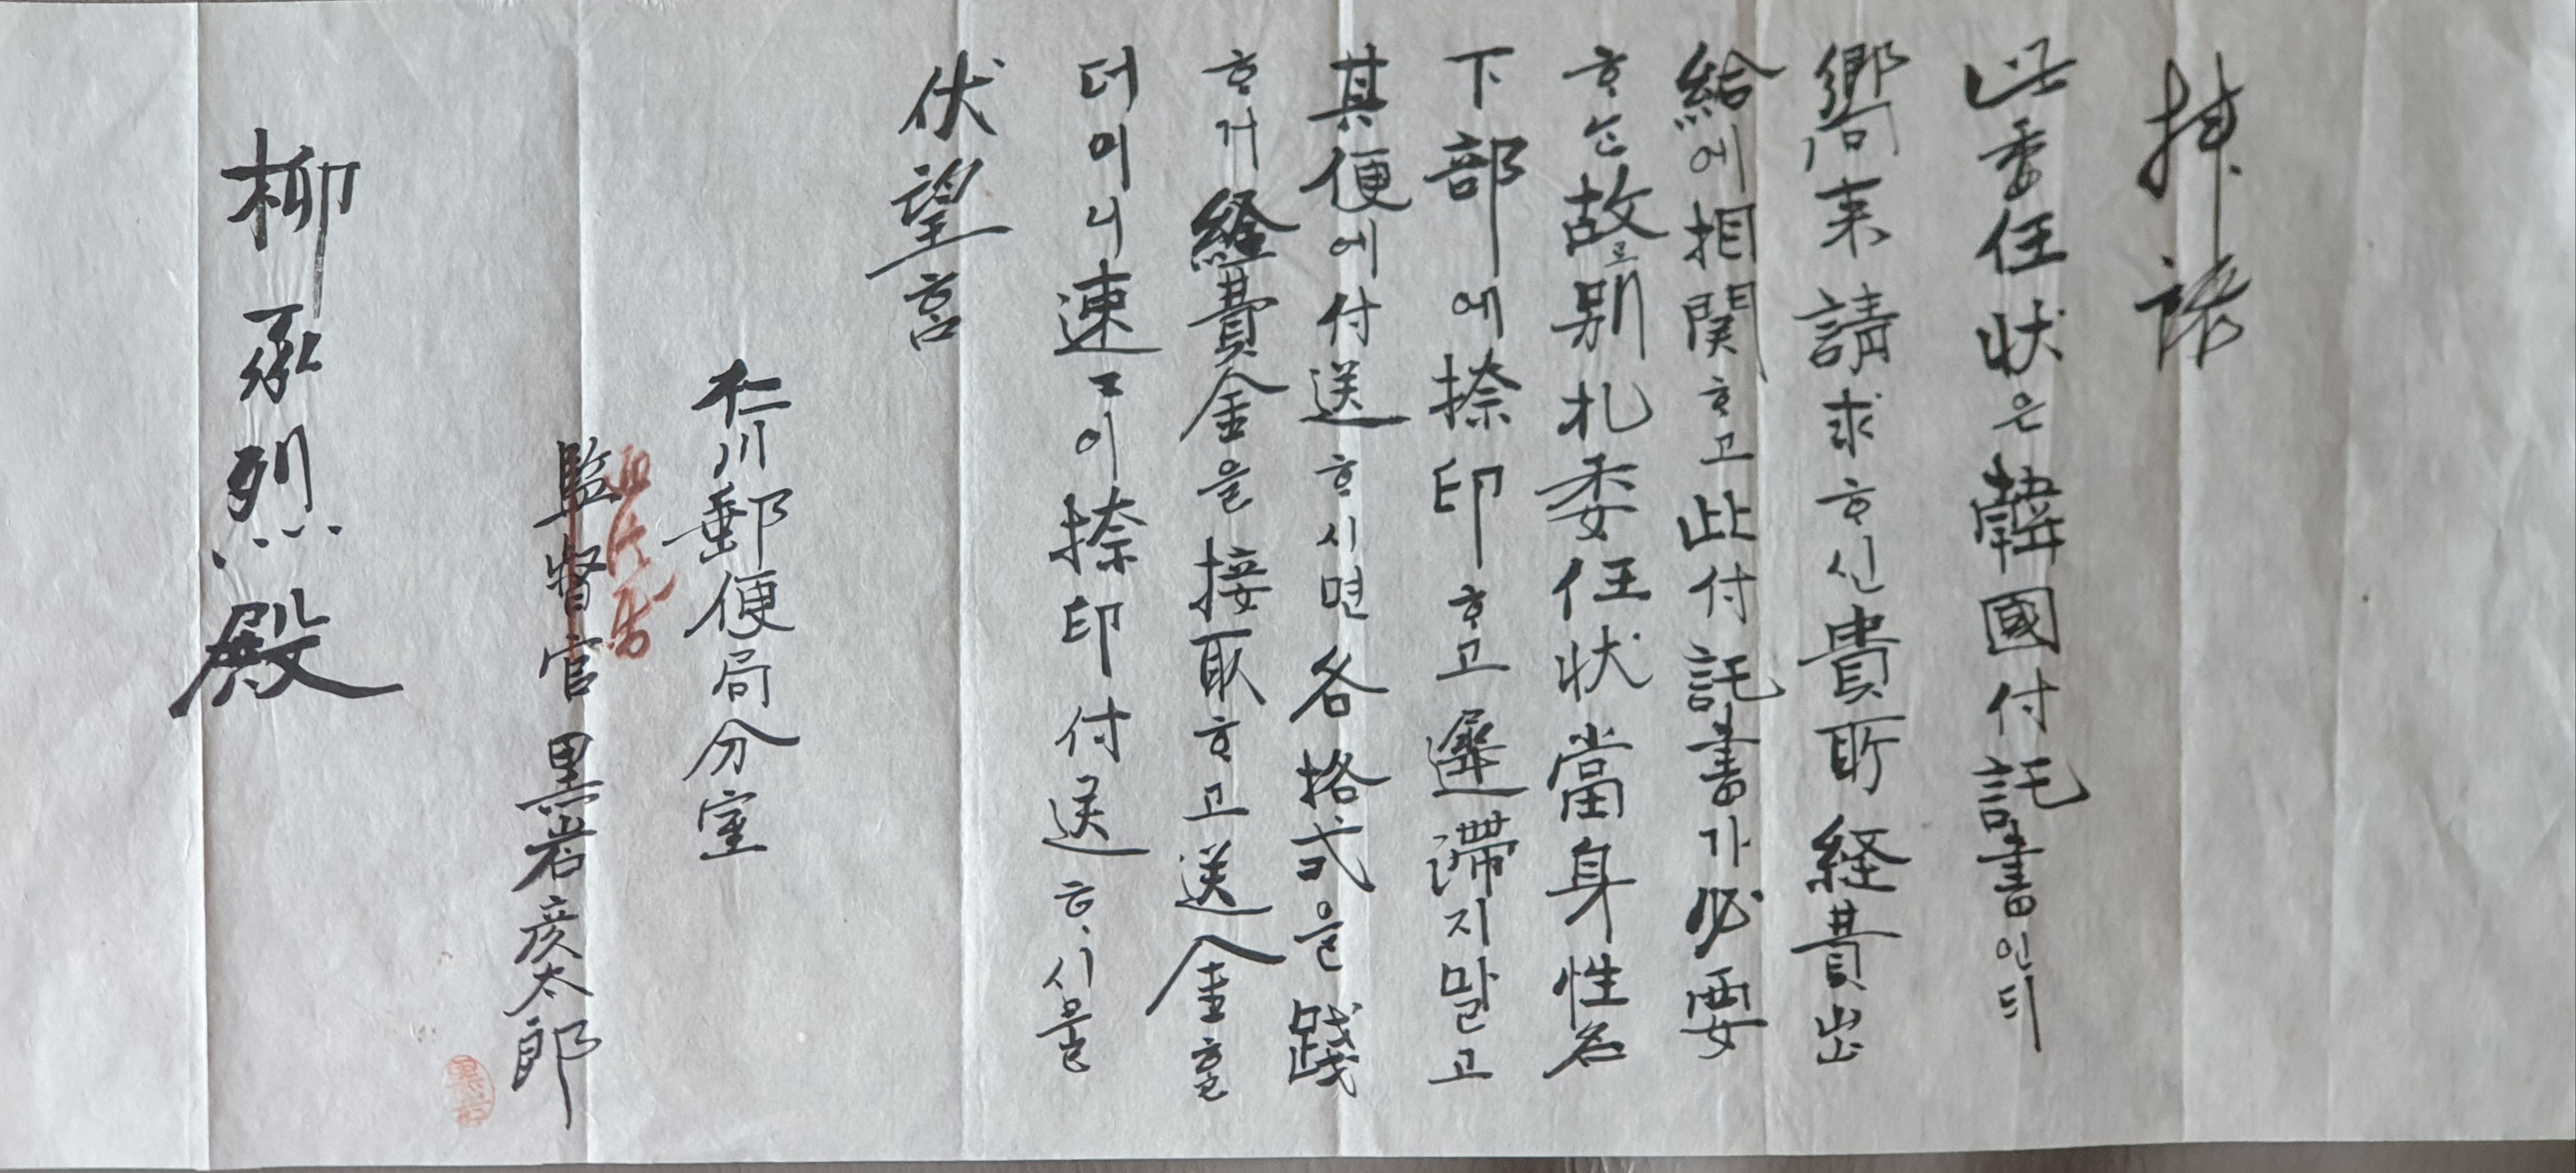 拝啓
此委任状은韓國付託書인ᄃᆡ
嚮来請求ᄒᆞ신貴所経費出
給에相関ᄒᆞ고此付託書가必要
ᄒᆞᆫ故로別札委任状當身性名
下部에捺印ᄒᆞ고遲滯지말고
其便에付送ᄒᆞ시면各格式을踐
ᄒᆞ거經費金을接取ᄒᆞ고送金ᄒᆞᆯ
터이니速ᄭᅳ이捺印付送ᄒᆞ시물
伏望홈
仁川郵便局分室
監督官 黒岩彦太郎
柳承烈殿